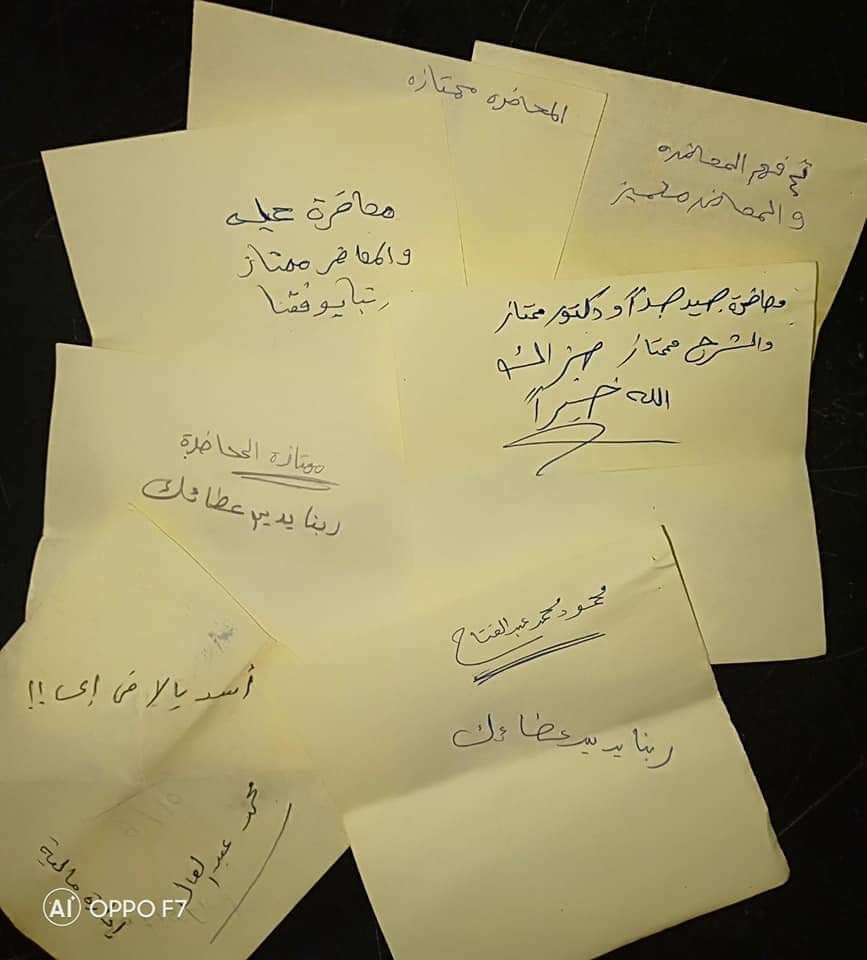 المحاضرة ممتازه
تم فهم المحاضره
والمحاضر متميز
محاضرة
والمحاضر ممتاز
ربنا يوفقنا
محاضرة جيد جداً ودكتور ممتاز
والشرح ممتاز جزاك
الله خيراً
ممتازه المحاضرة
ربنا يديم عطائك
محمود محمد عبد الفتاح
ربنا يديم عطاءك
أسد يالا فى إى !!
محمد عبد العال
مالية
AI OPPO F7